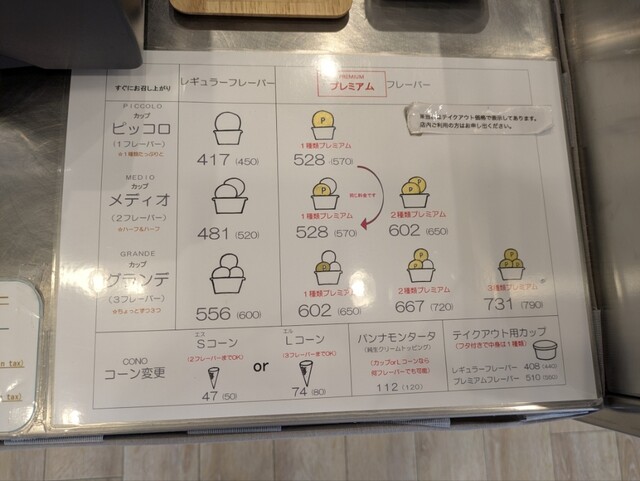 すぐにお召し上がり
レギュラーフレーバー
PREMIUM
プレミアム フレーバー
店内ご利用の方はお申し出ください。
PICCOLO
カップ
ピッコロ
(1フレーバー)
417 (450)
P
1種類プレミアム
528 (570)
MEDIO
カップ
メディオ
(2フレーバー)
※ハーフ&ハーフ
481 (520)
P
1種類プレミアム
528 (570)
同じ料金です
P P
2種類プレミアム
602 (650)
GRANDE
カップ
グランデ
(3フレーバー)
※ちょっとずつ3つ
556 (600)
P
1種類プレミアム
602 (650)
P P
2種類プレミアム
667 (720)
P P P
3種類プレミアム
731 (790)
CONO
コーン変更
エス
Sコーン
(2フレーバーまでOK)
47 (50)
or
エル
Lコーン
(3フレーバーまでOK)
74 (80)
パンナモンタータ
(純生クリームトッピング)
(カップorLコーンなら
何フレーバーでも可能)
112 (120)
テイクアウト用カップ
(フタ付きで中身は1種類)
レギュラーフレーバー 408 (440)
プレミアムフレーバー 510 (550)
tax)
tax)